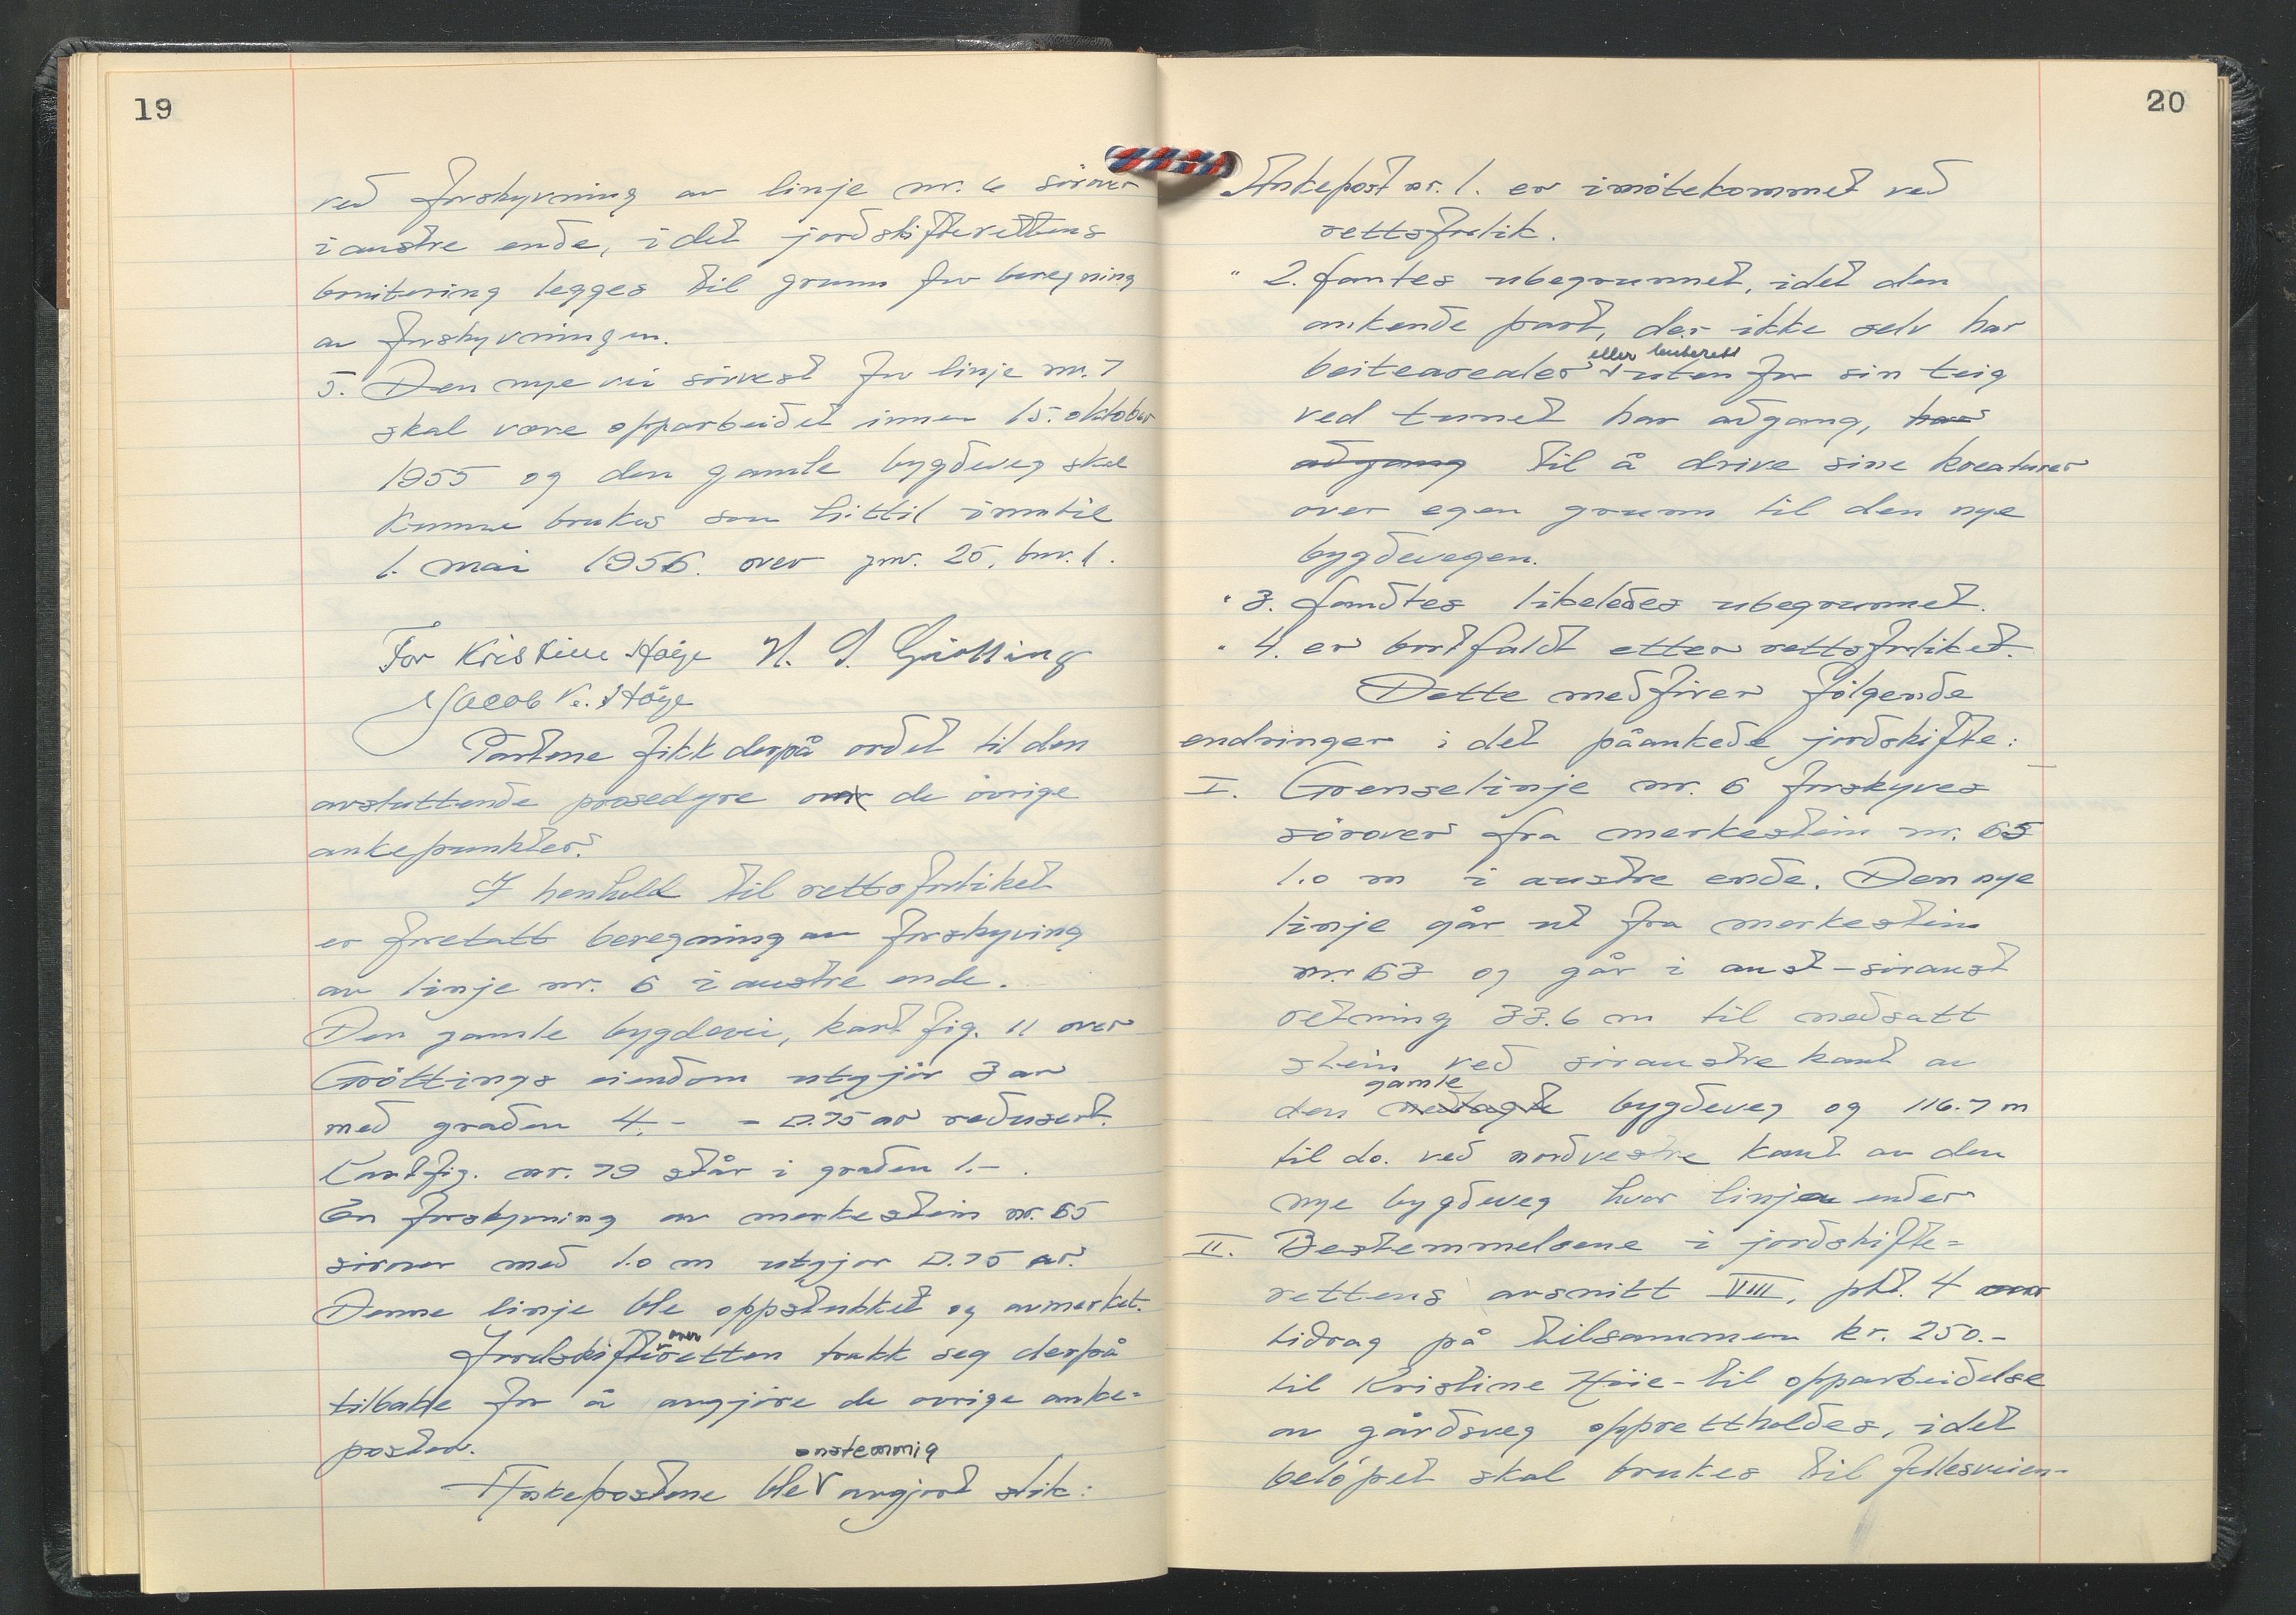 19
ved forskyvning av linje nr. 6 sörover
i austre ende, i det jordskifterettens
bonitering legges til grunn for beregning
av forskyvningen.
5. Den nye vei sörvest for linje nr. 7
skal være opparbeidet innen 15. oktober
1955 og den gamle bygdeveg skal
kunne brukes som hittil inntil
1. mai 1956. over gnr. 25, bnr. 1.
For Kristine Höye H. S. Grötting
Jacob K. Höye
Partene fikk derpå ordet til den
avsluttende prosedyre om de övrige
ankepunkter.
I henhold til rettsforliket
er foretatt beregning av forskyving
av linje nr. 6 i austre ende.
Den gamle bygdevei, kart fig. 11 over
Gröttings eiendom utgjör 3 ar
med graden 4.- = 0.75 ar redusert.
Kartfig. nr. 79 står i graden 1.- .
En forskyvning av merkestein nr. 65
sörover med 1.0 m utgjör 0.75 ar.
Denne linje ble oppstukket og avmerket.
over
Jordskifteretten trakk seg derpå
tilbake for å avgjöre de övrige anke=
poster.
enstemmig
Ankepostene ble avgjort slik:
20
Ankepost nr. 1. er imötekommet ved
rettsforlik.
" 2. fantes ubegrunnet, idet den
ankende part, der ikke selv har
eller beiterett
beitearealer uten for sin teig
ved tunet har adgang, har
adgang til å drive sine kreaturer
over egen grunn til den nye
bygdevegen.
" 3. fandtes likeledes ubegrunnet.
" 4. er bortfaldt etter rettsforliket.
Dette medförer fölgende
endringer i det påankede jordskifte:
I. Grenselinje nr. 6 forskyves
sörover fra merkestein nr. 65
1.0 m i austre ende. Den nye
linje går ut fra merkestein
nr. 63 og går i aust-söraust
retning 33.6 m til nedsatt
stein ved söraustre kant av
gamle
den nedlagte bygdeveg og 116.7 m
til do. ved nordvestre kant av den
nye bygdeveg hvor linjen ender
II. Bestemmelsene i jordskifte=
rettens avsnitt VIII, pkt. 4 om
tidrag på tilsammen kr. 250.-
til Kristine Höie - til opparbeidelse
av gårdsveg opprettholdes, idet
belöpet skal brukes til fellesveien-